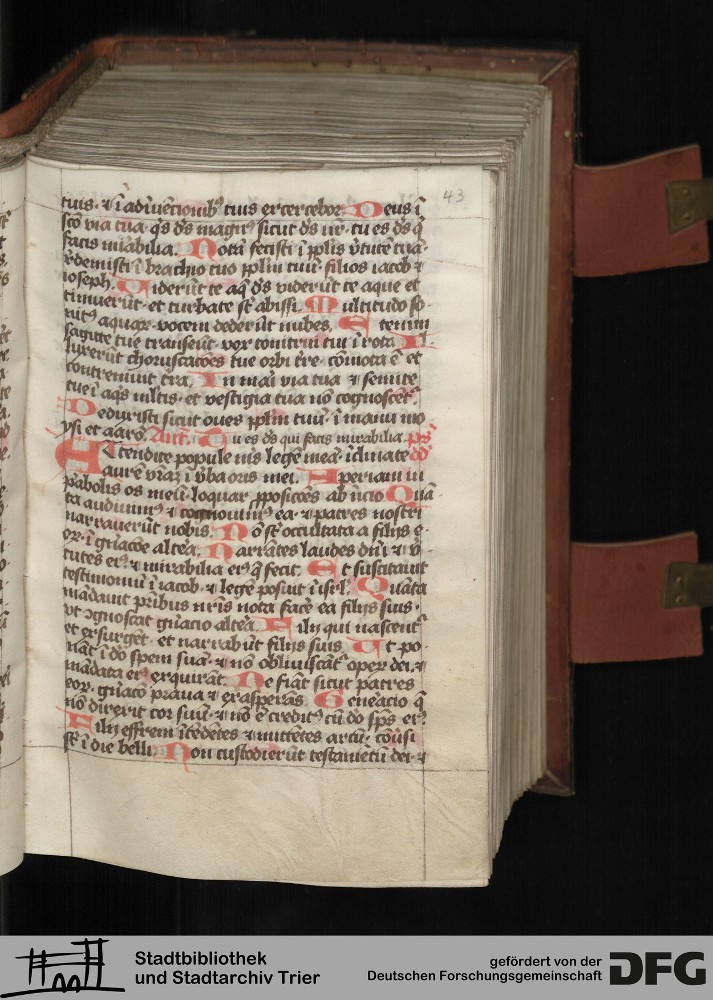 43
tuis · ⁊ ī adīuēcionibꝰ tuis exercebor Deus ī
sc̄o via tua · qͥs dˢ magnꝰ sicut dˢ nr̄ · tu es dˢ qͥ
facis mirabilia · Nota fecisti ī pplīs v̓tutē tuā ·
redemisti ī brachio tuo pplm̄ tuū · filios iacob ⁊
ioseph · Viderūt te aq̄ dˢ viderūt te aque et
timuerūt · et turbate sūt abissi · Multitudo so
nitꝰ aquaꝝ · vocem dederūt nubes · Etenim
sagitte tue transeūt · vox tonitrui tui ī rota Il
luxerūt choruscacōes tue orbi tr̄re · cōmota ē et
contremuit t̄ra · In mari via tua ⁊ semite
tue ī aqͥs mltis · et vestigia tua nō cognoscētr̄ ·
Deduxisti sicut oues pplm̄ tuū · ī manu mo
ysi et aaron · Ant · Tu es dˢ qui facis mirabilia · ps
Attendite popule mꝰ legē meā · īclinate
aurē vr̄aꝫ ī v̓ba oris mei · Aperiam in
pabolis os meū · loquar pposicōes ab īicio Quā
ta audiuimꝰ ⁊ cognouimꝰ ea · ⁊ patres nostri
narrauerūt nobis · Nō sūt occultata a filijs e ·
oꝝ · ī gnāc̄oe altera · Narrātes laudes dn̄i ⁊ v̓ ·
tutes eiꝰ ⁊ mirabilia eiꝰ q̄ fecit · Et suscitauit
testimoniū ī iacob · ⁊ legē posuit ī isrl̄ · Quāta
mādauit pr̄ibus nr̄is nota face̓ ea filijs suis ·
vt ↄgnoscat gn̄acio altera Filij qui nascentr̄
et exsurgēt · et narrabūt filijs suis Vt po ·
nāt ī do spem suā · ⁊ nō obliuiscātr̄ opeꝝ dei · ⁊
mādata eiꝰ exquirāt · Ne fiāt sicut patres
eoꝝ · gn̄acō praua ⁊ exasperās Generacio q̄
nō direxit cor suū · ⁊ nō ē creditꝰ cū do sp̄s eiꝰ
Filij effrem ītēdētes ⁊ mittētes arcū · cōūsi
sūt ī die belli · Non custodierūt testamētū dei · ⁊
Stadtbibliothek
und Stadtarchiv Trier
gefördert von der
Deutschen Forschungsgemeinschaft
DFG